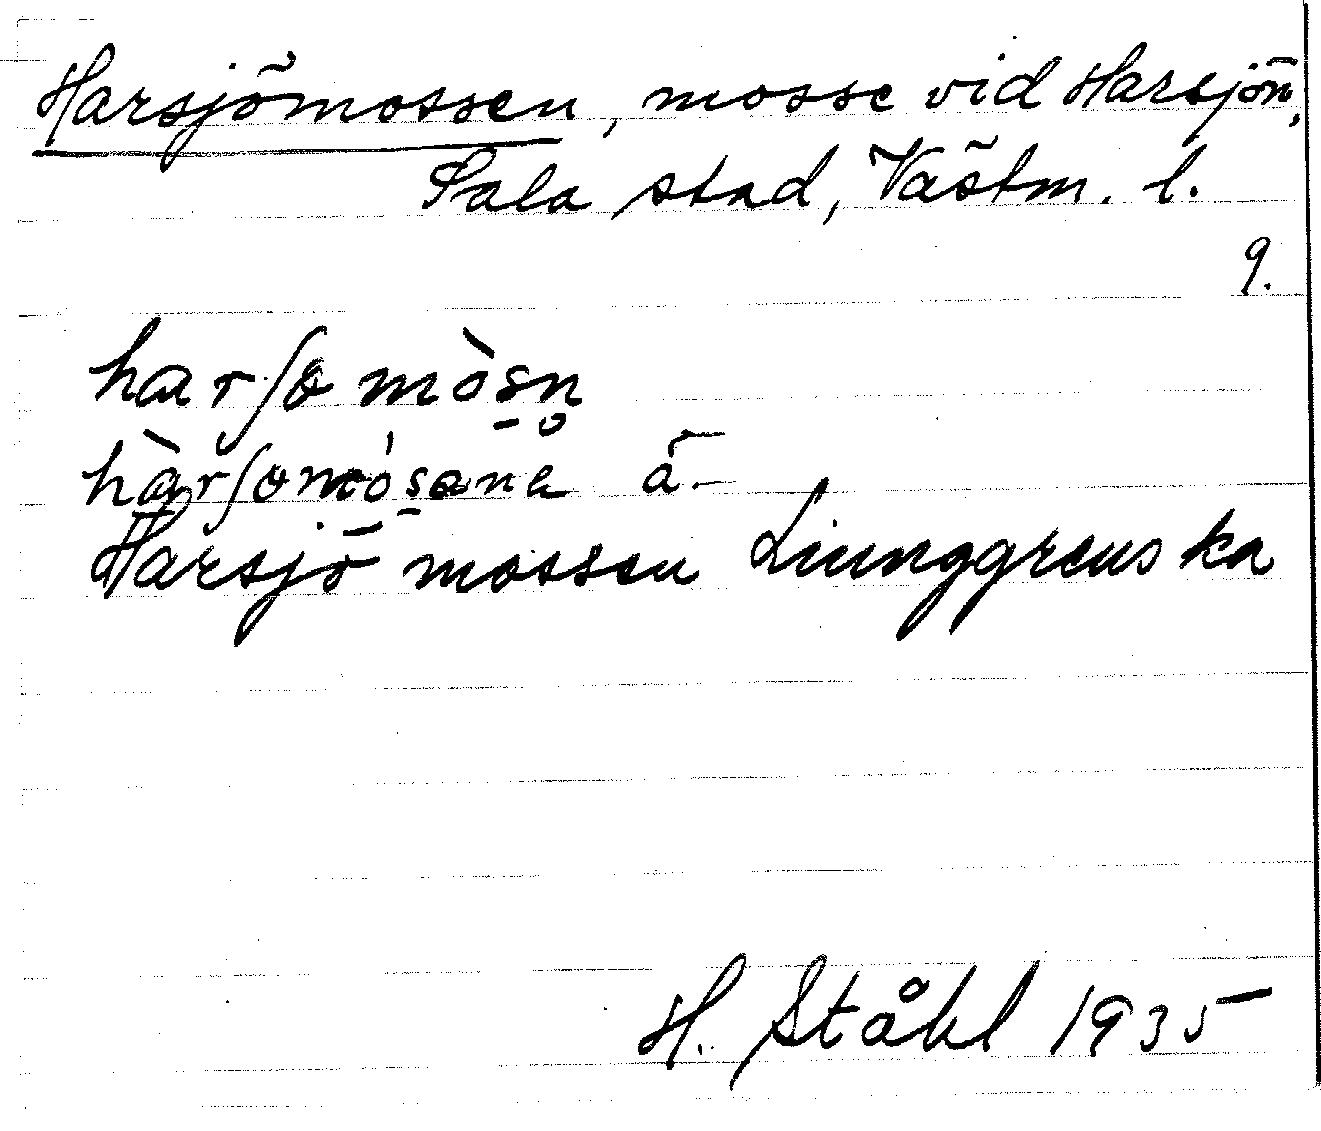 Harsjömossen, mosse vid Harsjön,
Sala stad, Västm. l.
9.
harʃɵmòsn̥
hàrʃɵmósɵnɐ ä.
Harsjö mossen Liunggrenska
H. Ståhl 1935